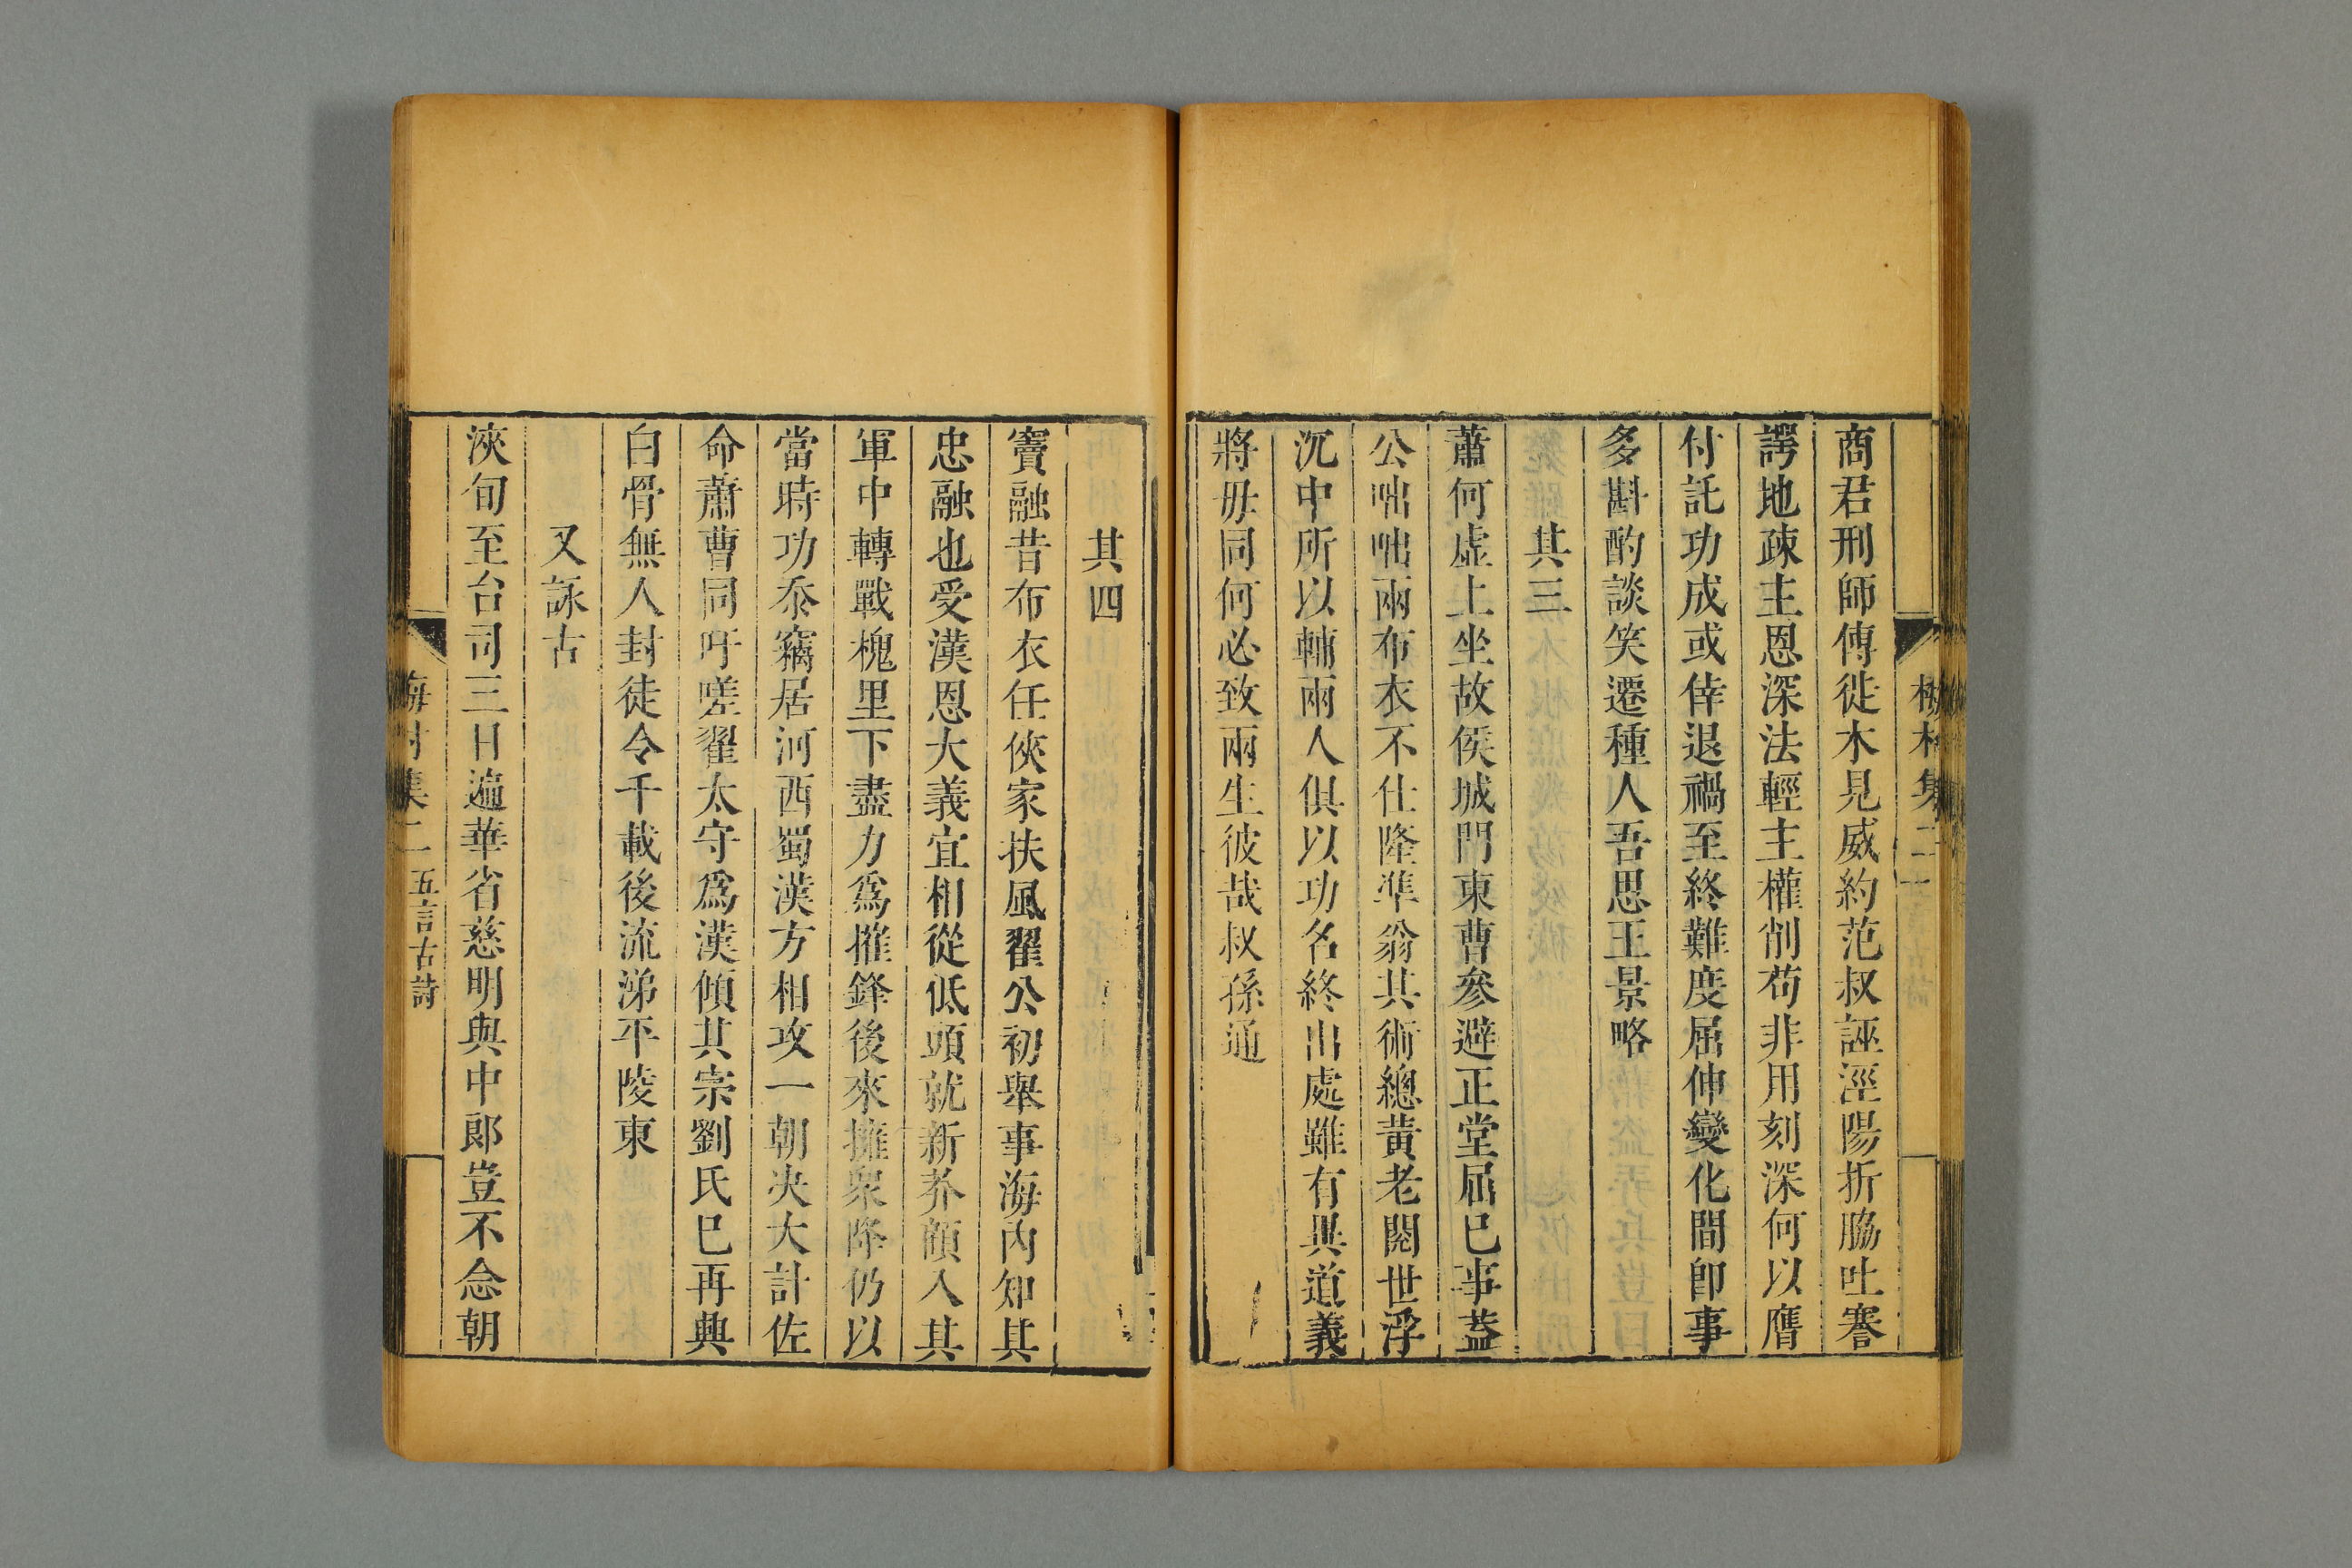 商君刑師傅徙木見威約范叔誣涇陽折脇吐謇
諤地疎主恩深法輕主權削苟非用刻深何以膺
付託功成或倖退禍至終難度屈伸變化間卽事
多斟酌談笑遷種人吾思王景略
其三
蕭何虛上坐故侯城門東曹參避正堂屈已事蓋
公咄咄兩布衣不仕隆準翁其術總黃老閱世浮
沉中所以輔兩人俱以功名終出處雖有異道義
將毋同何必致兩生彼哉叔孫通
其四
竇融昔布衣任俠家扶風翟公初舉事海內知其
忠融也受漢恩大義宜相從低頭就新莽顧入其
軍中轉戰槐里下盡力爲摧鋒後來擁衆降仍以
當時功忝竊居河西蜀漢方相攻一朝決大計佐
命蕭曹同吁嗟翟太守爲漢傾其宗劉氏已再興
白骨無人封徒令千載後流涕平陵東
又詠古
浹旬至台司三日遍華省慈明與中郞豈不念朝
梅村集二 五言古詩